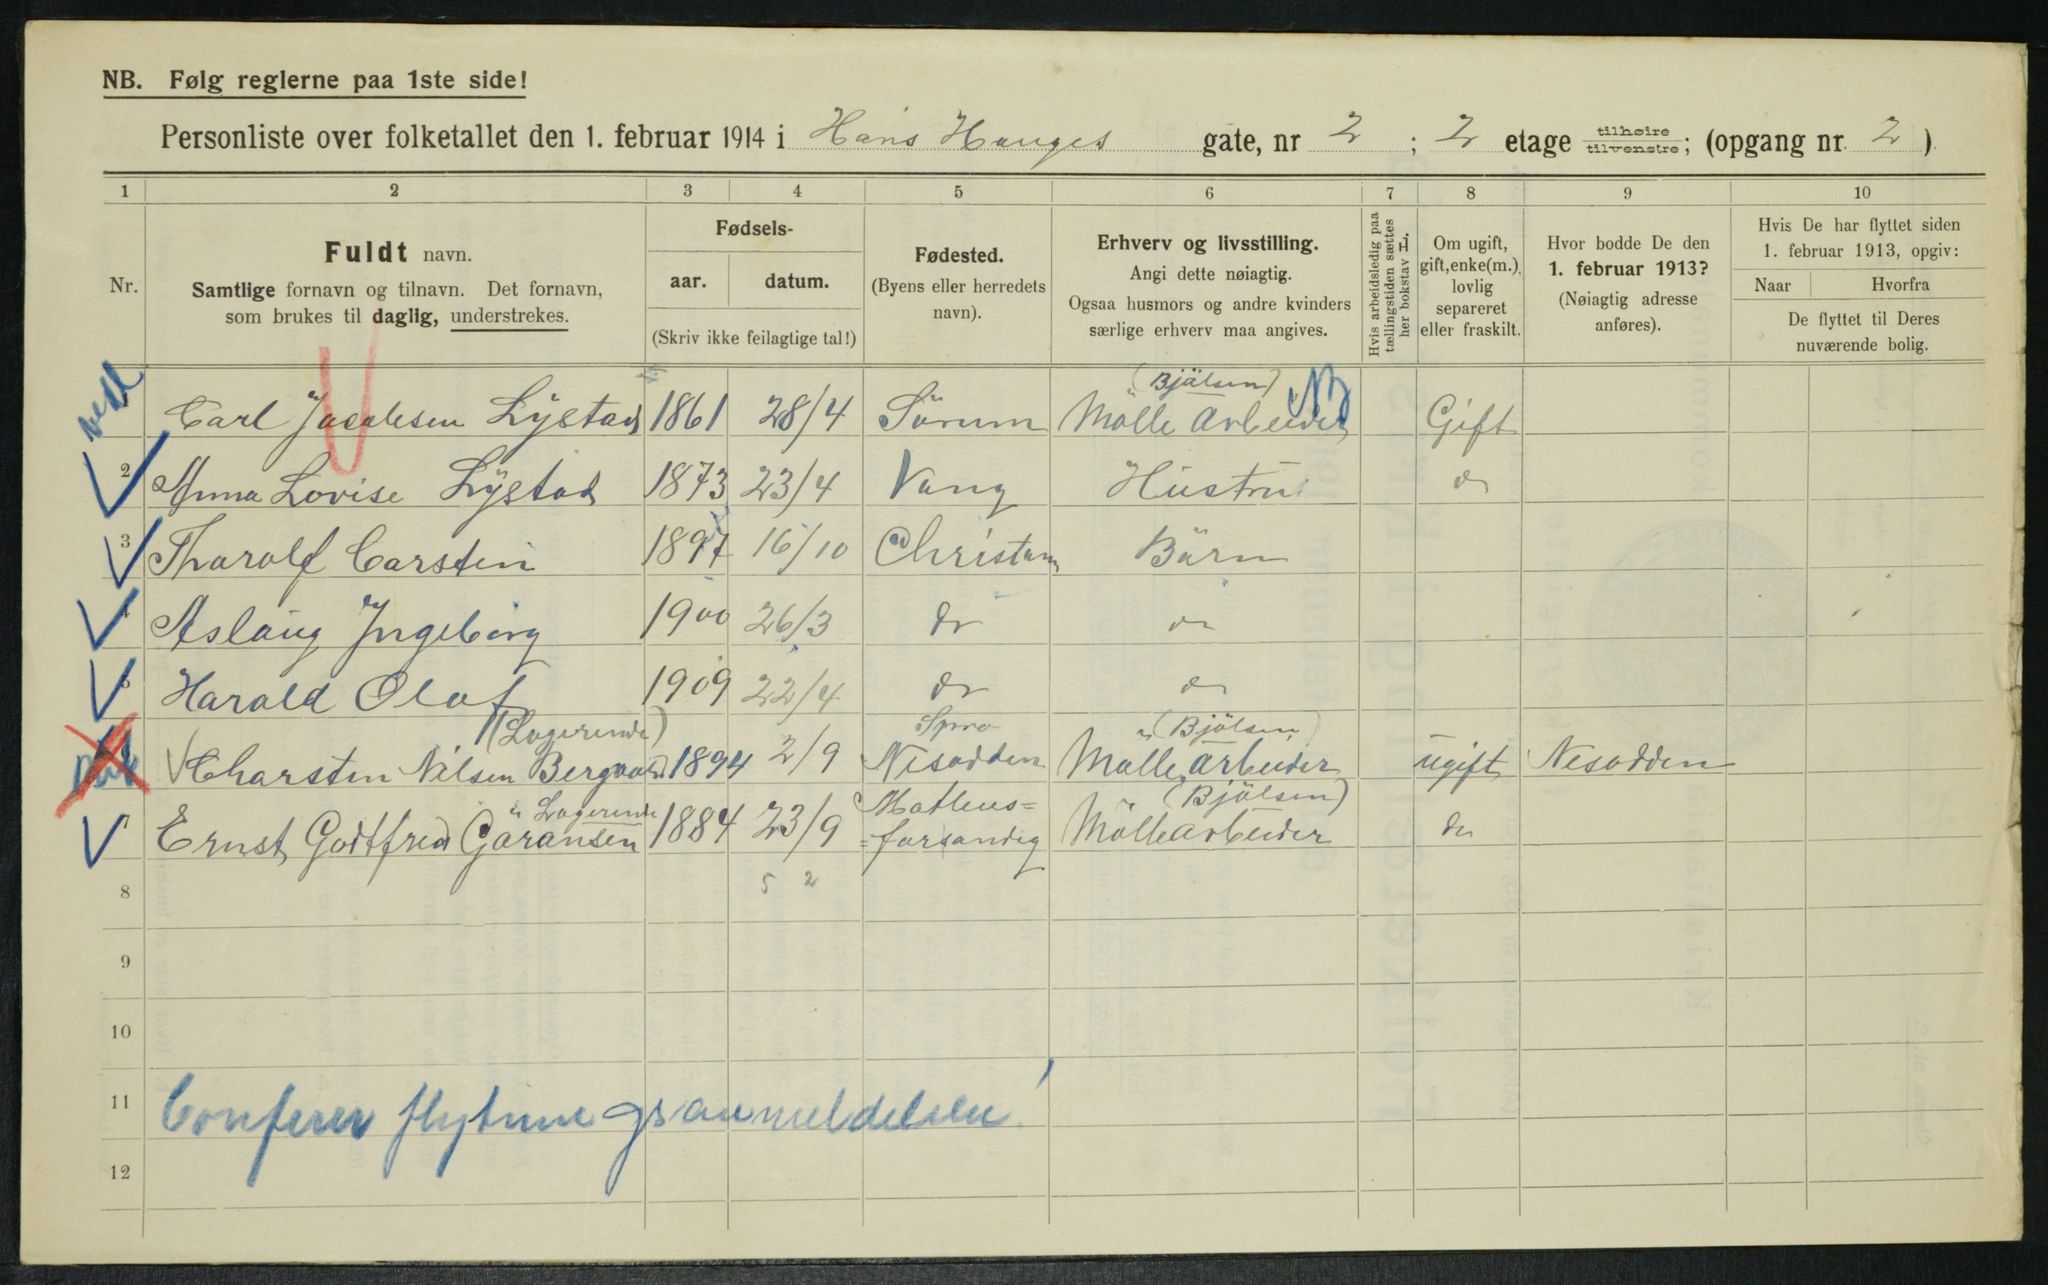 NB. Følg reglerne paa 1ste side!
Personliste over folketallet den 1. februar 1914 i Hans Hauges gate, nr 2 ; 2 etage tilhøire tilvenstre; (opgang nr. 2 )
1 2 3 4 5 6 7 8 9 10
Nr.
Fuldt navn.
Samtlige fornavn og tilnavn. Det fornavn,
som brukes til daglig, understrekes.
Fødsels-
aar. datum.
(Skriv ikke feilagtige tal!)
Fødested.
(Byens eller herredets
navn).
Erhverv og livsstilling.
Angi dette nøiagtig.
Ogsaa husmors og andre kvinders
særlige erhverv maa angives.
Hvis arbeidsledig paa
tællingstiden sættes
her bokstav L.
Om ugift,
gift, enke(m.),
lovlig
separeret
eller fraskilt.
Hvor bodde De den
1. februar 1913?
(Nøiagtig adresse
anføres).
Hvis De har flyttet siden
1. februar 1913, opgiv:
Naar Hvorfra
De flyttet til Deres
nuværende bolig.
(Bjölsen) NB
Carl Jacobsen Lystad 1861 28/4 Sörum Mölle Arbeider Gift
2 Anna Lovise Lystad 1873 23/4 Vang Hustru do
3 Tharolf Carsten 1897 16/10 Christania Bärn
4 Aslaug Ingeborg 1900 26/3 do do
5 Harald Olaf 1909 22/4 do do
(Logerende) Spro (Bjölsen)
Charsten Nilsen Bergvald 1894 2/9 Nesodden Mölle Arbeider ugift Nesodden
Logerende Matteus= (Bjölsen)
7 Ernst Godtfred Göransen 1884 23/9 =forsandig Möllearbeider do
8 5 2
9
10
11 Conferer flytningsanmeldelsen!
12